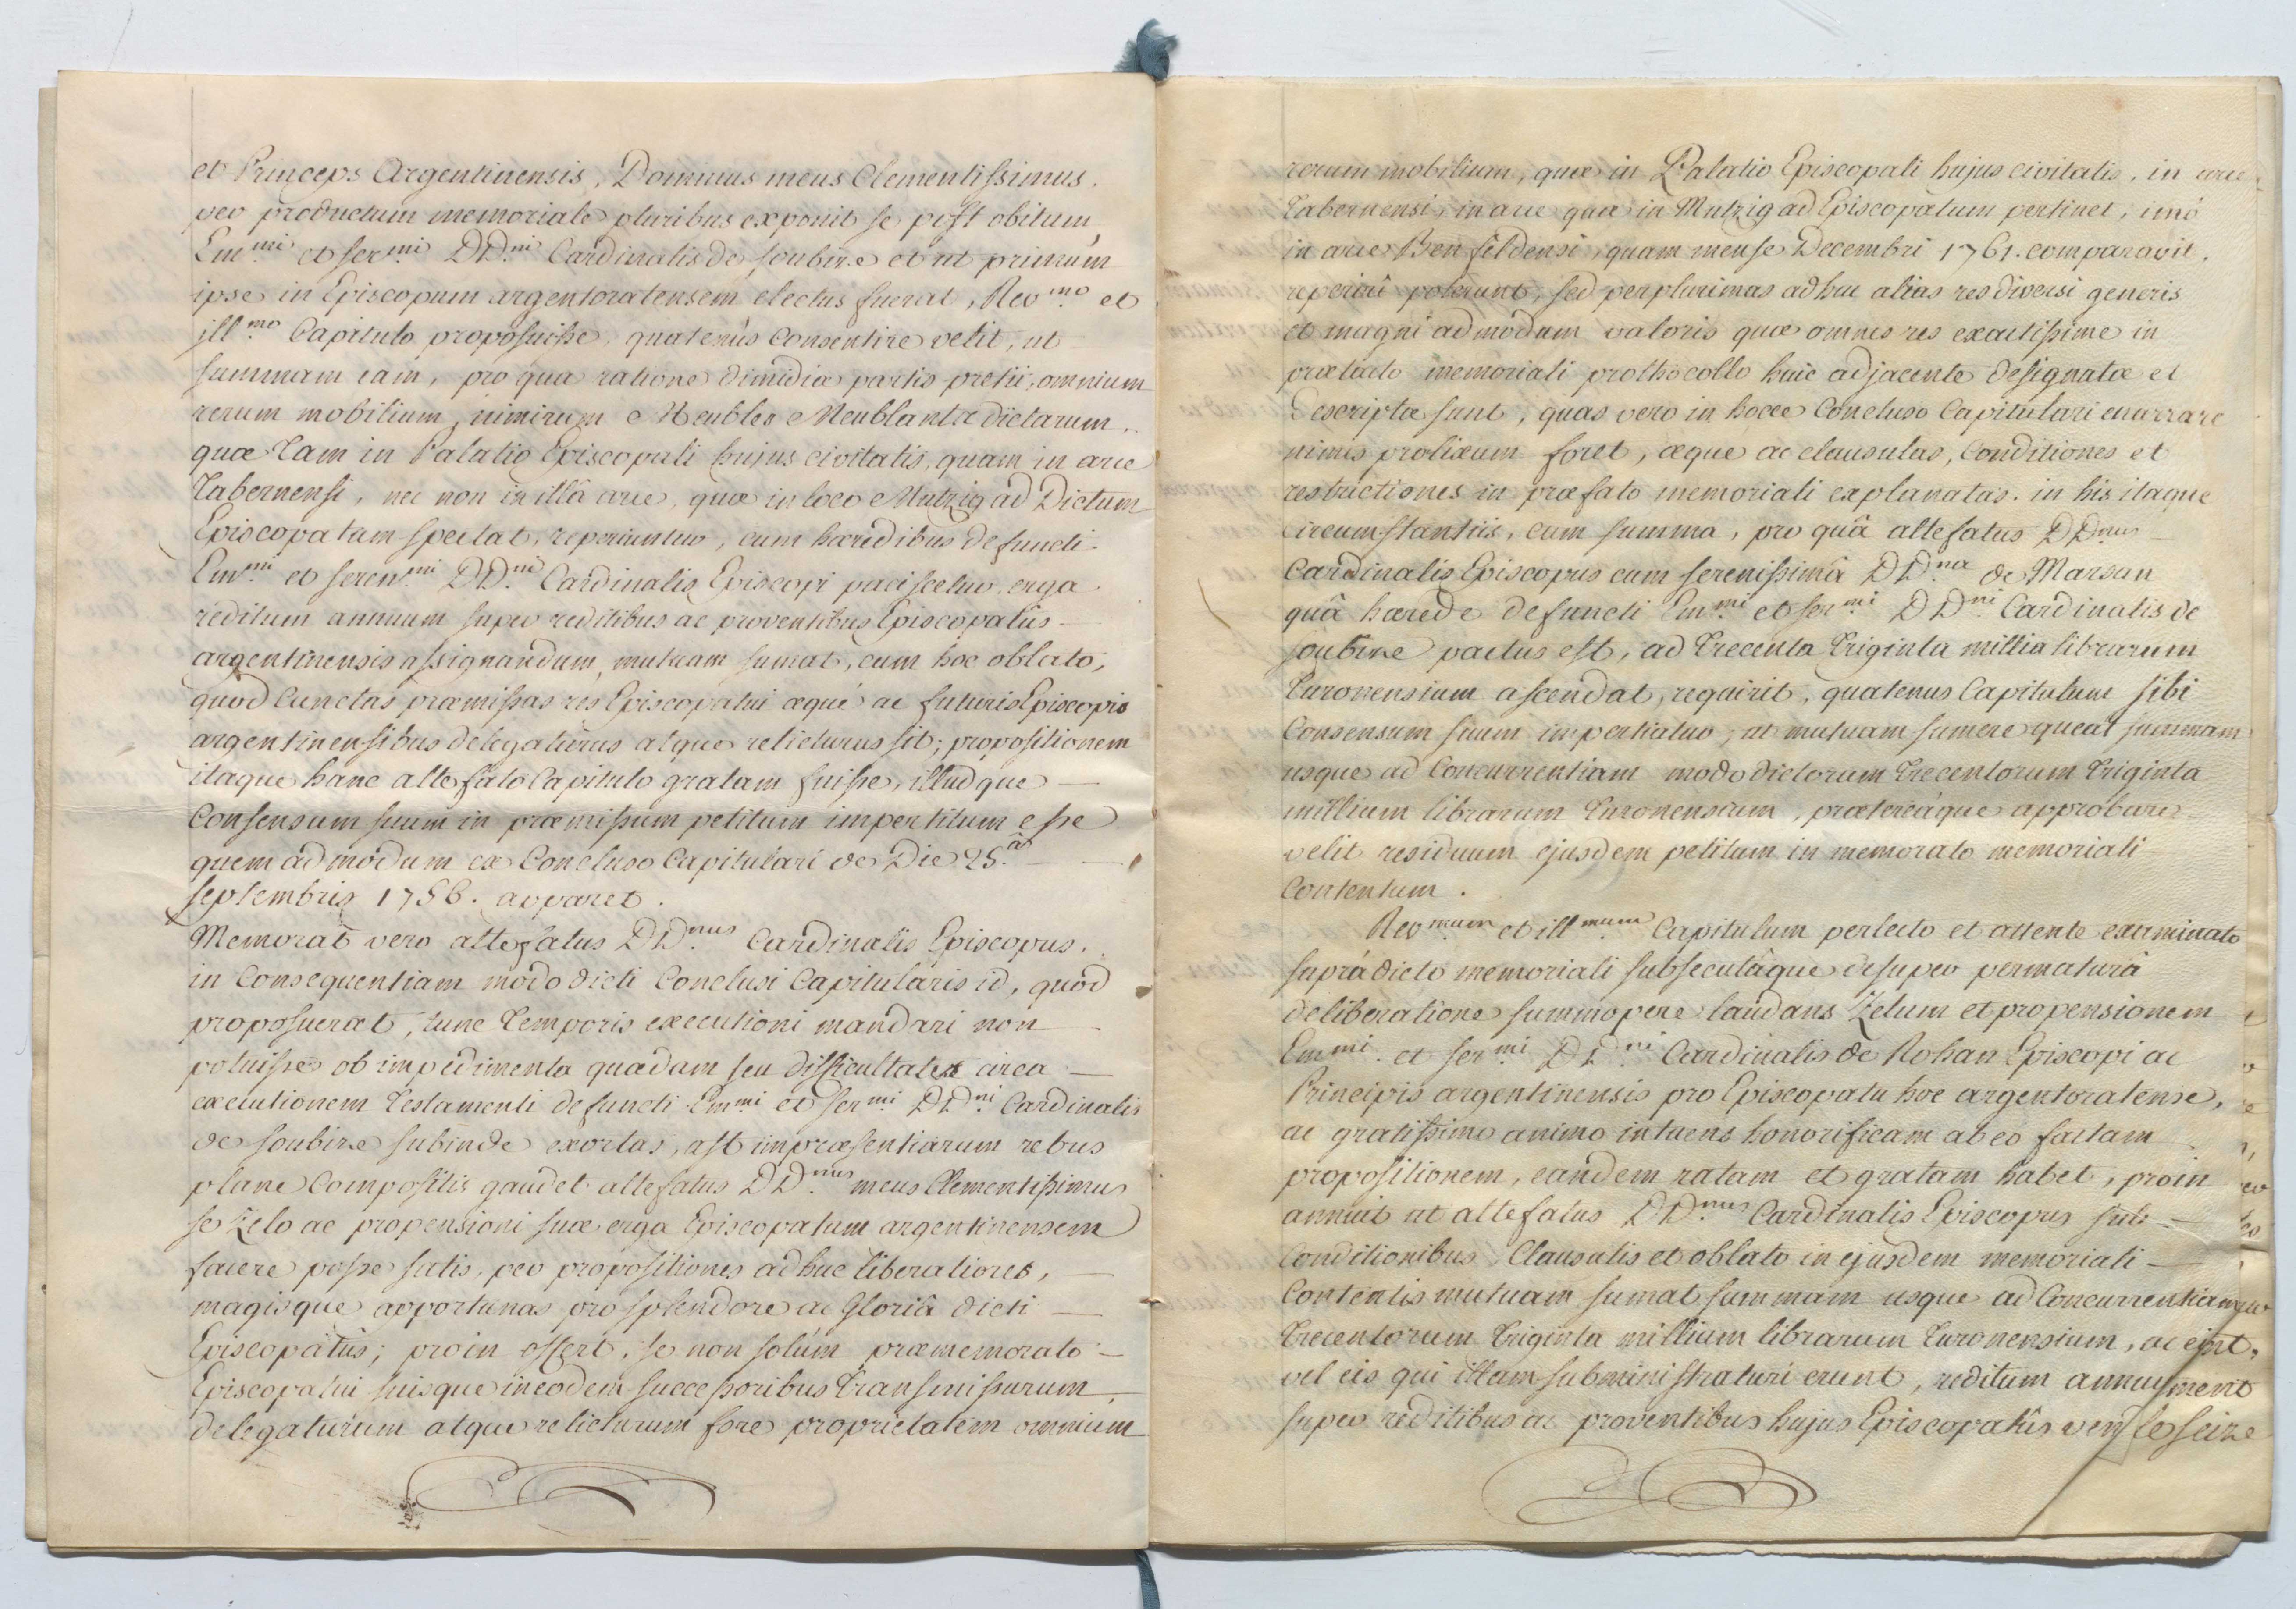 et Princeps Argentinensis, Dominus meus Clementissimus,
per productum memoriale pluribus exponit se post obitum
Em.mi et ser.mi DD.ni Cardinalis de soubise et ut primùm
ipse in Episcopum argentoratensem electus fuerat, Rev.mo et
ill.mo Capitulo proposuisse, quatenùs Consentire velit, ut
summam eam, pro qua ratione dimidiæ partis pretii, omnium
rerum mobilium, nimirum Meubles Meublantx dictarum,
quæ tam in Palatio Episcopali hujus civitatis, quam in arce
Tabernensi, nec non in illâ arce, quæ in loco Mutzig ad Dictum
Episcopatum spectat, reperiuntur, cum hæredibus defuncti
Em.mi et seren.mi DD.ni Cardinalis Episcopi paciscetur, erga
reditum annuum super reditibus ac proventibus Episcopatûs
argentinensis assignandum, mutuam sumat, cum hoc oblato,
quod Cunctas præmissas res Episcopatui æquè ac futuris Episcopis
argentinensibus delegaturus atque relicturus sit; propositionem
itaque hanc altefato Capitulo gratam fuisse, illudque —
Consensum suum in præmissum petitum impertitum esse
quemadmodum ex Concluso Capitulari de Die 25.â —
septembris 1756. apparet.
Memorat vero altefatus DD.nus Cardinalis Episcopus,
in Consequentiam modo dicti Conclusi Capitularis id, quod
proposuerat, tunc temporis executioni mandari non
potuisse ob impedimenta quædam seu difficultates circa —
executionem testamenti defuncti Em.mi et ser.mi DD.ni Cardinalis
de soubise subinde exortas, ast impræsentiarum rebus
plane Compositis gaudet altefatus DD.nus meus Clementissimus
se Zelo ac propensioni suæ erga Episcopatum argentinensem
facere posse satis, per propositiones adhuc liberaliores, —
magisque opportunas pro splendore ac Gloriâ dicti —
Episcopatûs; proin offert, se non solùm præmemorato —
Episcopatui suisque in eodem successoribus transmissurum,
delegaturum atque relicturum fore proprietatem omnium
rerum mobilium, quæ in Palatio Episcopali hujus civitatis, in arce
Tabernensi, in arce quæ in Mutzig ad Episcopatum pertinet, imò
in arce Benfeldensi, quam mense Decembri 1761. comparavit,
reperiri poterunt, sed per plurimas adhuc alias res diversi generis
et magni admodum valoris quæ omnes res exactissime in
prælato memoriali prothocollo huic adjacente designatæ et
descriptæ sunt, quas vero in hocce Concluso Capitulari enarrare
nimis prolixum foret, æque ac clausulas, Conditiones et
restrictiones in præfato memoriali explanatas. in his itaque
circumstantiis, cum summa, pro quâ altefatus DD.nus —
Cardinalis Episcopus cum serenissimâ DD.na de Marsan
quâ hærede defuncti Em.mi et ser.mi DD.ni Cardinalis de
soubise pactus est, ad trecenta triginta millia librarum
turonensium ascendat, requirit, quatenus Capitulum sibi
Consensum suum impertiatur, ut mutuam sumere queat summam
usque ad Concurrentiam modo dictorum trecentorum triginta
millium librarum turonensium, prætereàque approbare
velit residuum ejusdem petitum in memorato memoriali
Contentum.
Rev.mum et ill.mum Capitulum perlecto et attente examinato
suprà dicto memoriali subsecutâque desuper permaturâ
deliberatione summopere laudans Zelum et propensionem
Em.mi et ser.mi DD.ni Cardinalis de Rohan Episcopi ac
Principis argentinensis pro Episcopatu hoc argentoratense,
ac gratissimo animo intuens honorificam ab eo factam
propositionem, eandem ratam et gratam habet, proin
annuit ut altefatus DD.nus Cardinalis Episcopus sub —
Conditionibus, Clausulis et oblato in ejusdem memoriali —
Contentis mutuam sumat summam usque ad Concurrentiam
trecentorum triginta millium librarum turonensium, ac ei
vel eis qui illam subministraturi erunt, reditum annuum
super reditibus ac proventibus hujus Episcopatûs